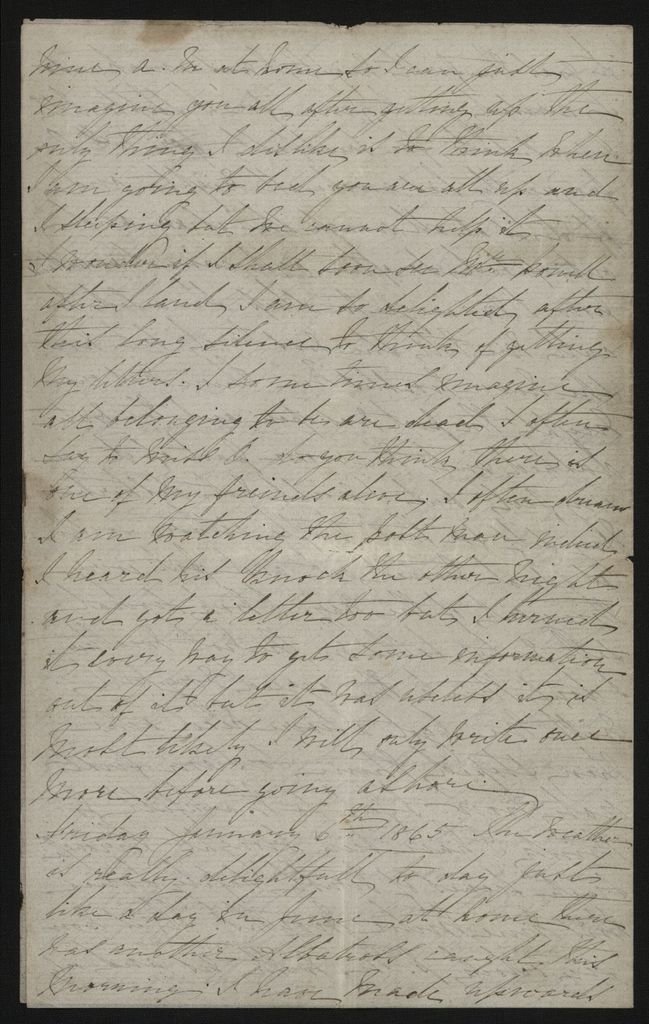 nine a.m at home so I can just
imagine you all after getting up the
only thing I dislike is to think when
I am going to bed you are all up and
I sleeping but we cannot help it
I wonder if I shall soon see Mr
after I land I am so delighted after
this long silence to think of getting
my letters. I some times imagine
all belonging to us are dead I often
say to Miss do you think there is
one of my friends alive. I often dream
I am watching the post man indeed
I heard his knock the other night
and got a letter too but I turned
it every way to get some information
out of it but it was useless it is
most likely I will only write once
more before going ashore.
Friday January 6th 1865 The weather
is really delightfull to day just
like a day in June at home there
was another Albatross caught this
morning. I have made upwards